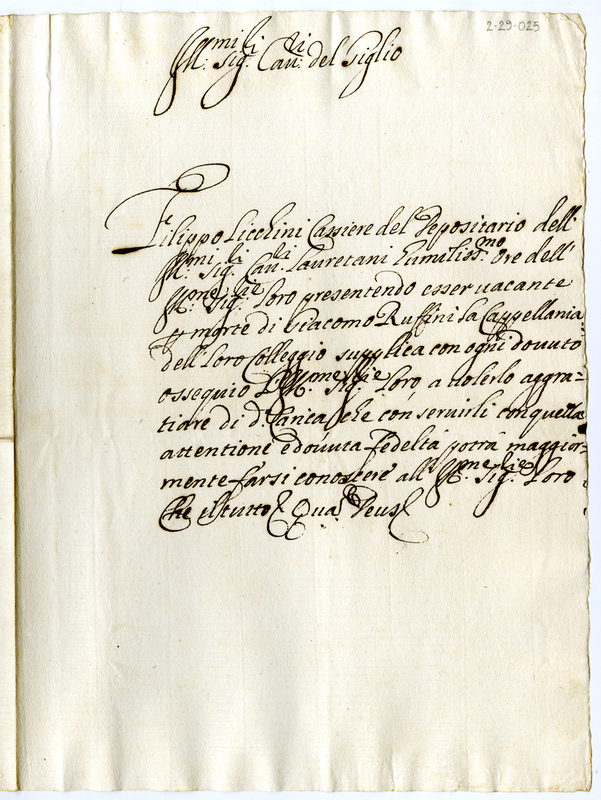 2-29-025
Ill.mi Sig.li Cau.li del Giglio
Filippo Licolini Cassiere del Depositario dell'
Ill.mi Sig.li Cau.li Lauretani humiliss.mo Ore dell'
Ill.me Sig.rie Loro presentendo esser uacante
morte di Giacomo Ruffini la Cappellania
dell' Loro Colleggio supplica con ogni douuto
ossequio Ill.me Sig.rie Loro, a uolerlo aggra=
tiare di d.a Carica, che con seruirli con quella
attentione e douuta fedeltà potrà maggior=
mente farsi conoscere all' Ill.me Sig.rie Loro
Che il tutto Qua Deus